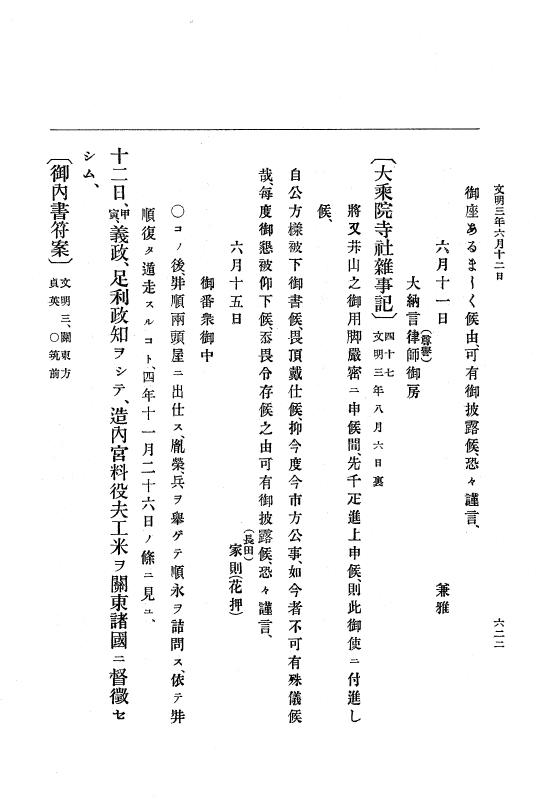 文明三年六月十二日
六二二
御座あるましく候由、可有御披露候、恐々謹言、
六月十一日
兼雅
大納言律師御房
(尋譽)
〔大乘院寺社雜事記〕
四十七
文明三年八月六日裏
將又井山之御用脚嚴密ニ申候間、先千疋進上申候、則此御使ニ付進し
候、
自公方樣被下御書候、畏頂戴仕候、抑今度今市方公事、如今者不可有殊儀候
哉、每度御懇被仰下候、忝畏令存候之由可有御披露候、恐々謹言、
六月十五日
(長田)
家則(花押)
御番衆御中
○コノ後、舛順兩頭屋ニ出仕ス、胤榮、兵ヲ擧ゲテ順永ヲ詰問ス、依テ舛
順復タ遁走スルコト、四年十一月二十六日ノ條ニ見ユ、
十二日、甲寅、義政、足利政知ヲシテ、造內宮料役夫工米ヲ關東諸國ニ督徵セ
シム、
〔御內書符案〕
文明三、關東方
貞英 ○筑前